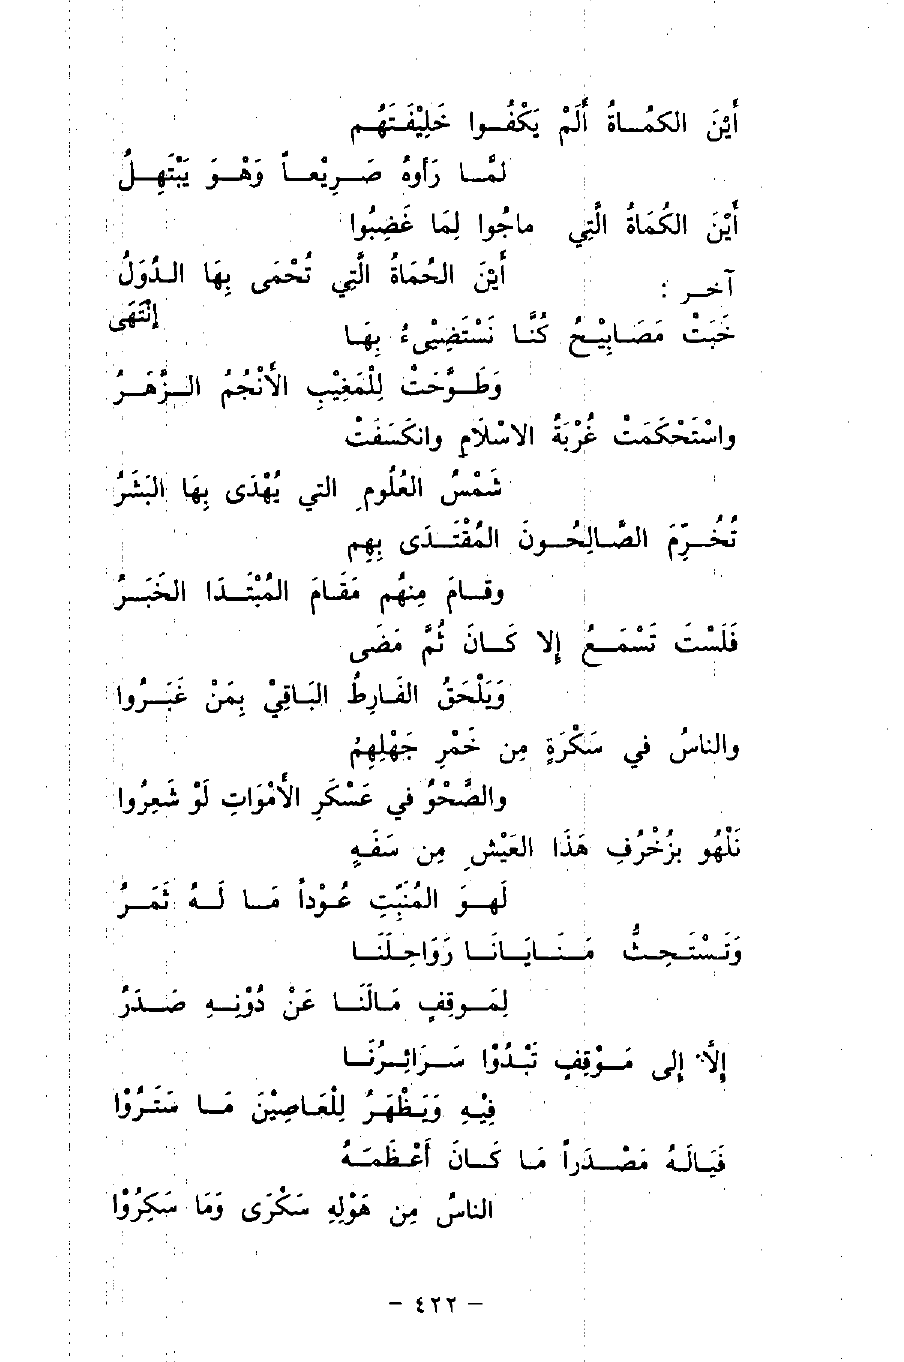 أَيْنَ الكمُـاةُ أَلَمْ يَكْفُـوا خَلِيْفَـتَهُـم
لمَّـا رَأوهُ صَـرِيْعـاً وَهْوَ يَبْتَهِـلُ
أَيْنَ الكُمَاةُ الَّتِي ماجُوا لِمَا غَضِبُوا
أَيْنَ الحُمَاةُ الَّتِي تُحْمَى بِهَا الـدُوَلُ
إنْتَهَى
آخـر :
خَبَتْ مَصَـابِيْـحُ كُنَّـا نَسْتَضِيْىءُ بِهَـا
وَطَـوَّحَتْ لِلْمَغِيْبِ الأَنْجُمُ الـزُّهَـرُ
واسْتَحْكَمَتْ غُرْبَةُ الاسْلَامِ وانكَسَفَتْ
شَمْسُ العُلُومِ التي يُهْدَى بِهَا البَشَرُ
تُخُـرِّمَ الصَّـالِحُـونَ المُقْتَـدَى بِهِم
وقـامَ مِنهُم مَقَامَ المُبْتَـدَا الخَبَـرُ
فَلَسْتَ تَسْمَـعُ إلا كَـانَ ثُمَّ مَضَى
وَيَلْحَقُ الفَـارِطُ البَـاقِيْ بِمَنْ غَبَـرُوا
والناسُ في سَكْرَةٍ مِن خَمْرِ جَهْلِهِمُ
والصَّحْوُ في عَسْكَرِ الأَمْوَاتِ لَوْ شَعِرُوا
نَلْهُو بزُخْرُفِ هَذَا العَيْشِ مِن سَفَهٍ
لَهـوَ المُنَبِّتِ عُـوْداً مَـا لَـهُ ثَمَـرُ
وَتَسْتَـحِـثُّ مَـنَـايَـانَـا رَوَاحِـلَنَـا
لِمَـوقِفٍ مَـالَنَـا عَنْ دُوْنِـهِ صَـدَرُ
إلَّا إلى مَـوْقِفٍ تَبْدُوْا سَـرَائِـرُنَـا
فِيْـهِ وَيَـظْهَـرُ لِلْعَـاصِيْنَ مَـا سَتَـرُوْا
فَيَـالَـهُ مَصْـدَراً مَا كَـانَ أَعْظَمَـهُ
الناسُ مِن هَوْلِهِ سَكْرَى وَمَا سَكِرُوْا
- ٤٢٢ -